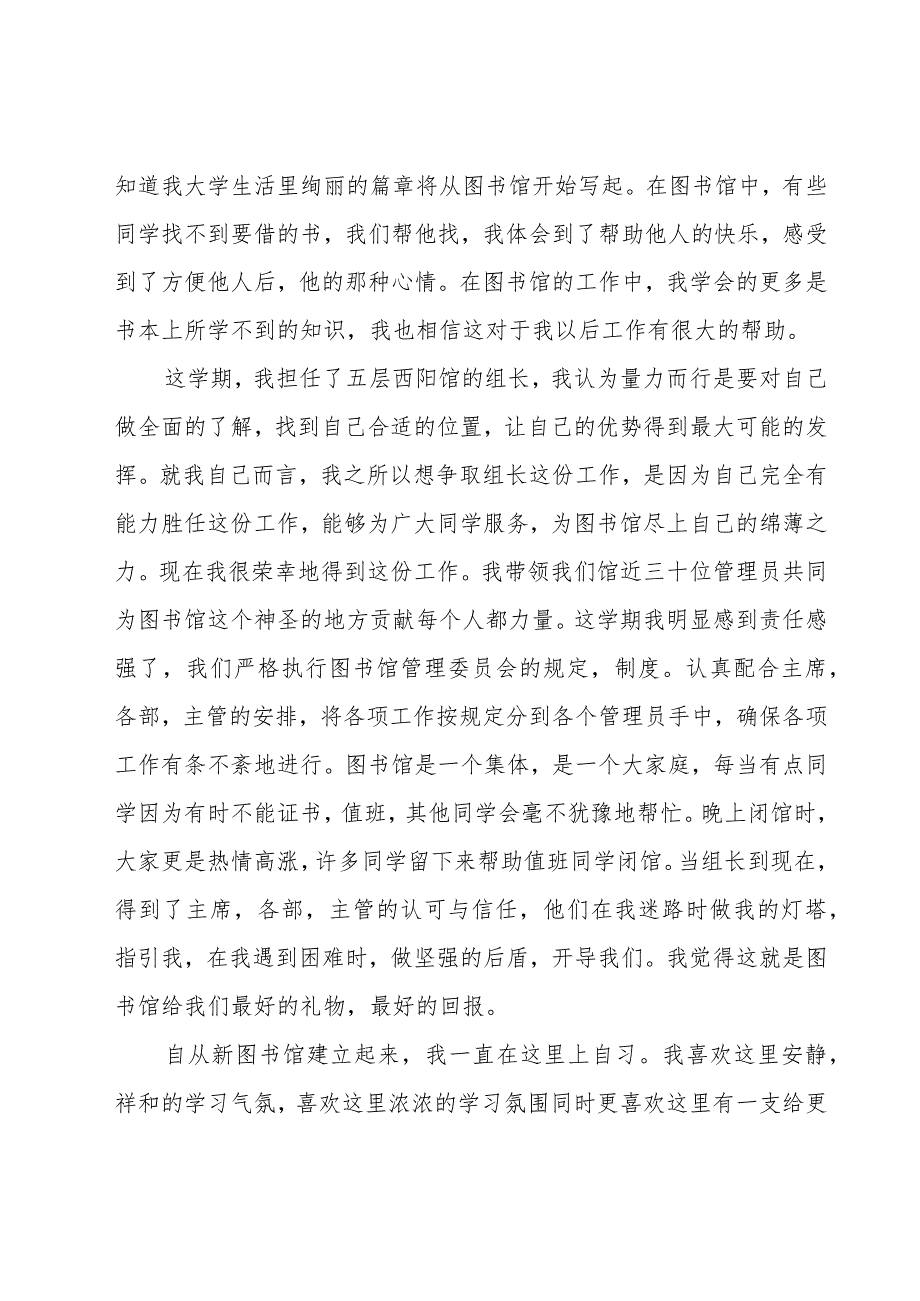 知道我大学生活里绚丽的篇章将从图书馆开始写起。在图书馆中，有些
同学找不到要借的书，我们帮他找，我体会到了帮助他人的快乐，感受
到了方便他人后，他的那种心情。在图书馆的工作中，我学会的更多是
书本上所学不到的知识，我也相信这对于我以后工作有很大的帮助。
这学期，我担任了五层西阳馆的组长，我认为量力而行是要对自己
做全面的了解，找到自己合适的位置，让自己的优势得到最大可能的发
挥。就我自己而言，我之所以想争取组长这份工作，是因为自己完全有
能力胜任这份工作，能够为广大同学服务，为图书馆尽上自己的绵薄之
力。现在我很荣幸地得到这份工作。我带领我们馆近三十位管理员共同
为图书馆这个神圣的地方贡献每个人都力量。这学期我明显感到责任感
强了，我们严格执行图书馆管理委员会的规定，制度。认真配合主席，
各部，主管的安排，将各项工作按规定分到各个管理员手中，确保各项
工作有条不紊地进行。图书馆是一个集体，是一个大家庭，每当有点同
学因为有时不能证书，值班，其他同学会毫不犹豫地帮忙。晚上闭馆时，
大家更是热情高涨，许多同学留下来帮助值班同学闭馆。当组长到现在，
得到了主席，各部，主管的认可与信任，他们在我迷路时做我的灯塔，
指引我，在我遇到困难时，做坚强的后盾，开导我们。我觉得这就是图
书馆给我们最好的礼物，最好的回报。
自从新图书馆建立起来，我一直在这里上自习。我喜欢这里安静，
祥和的学习气氛，喜欢这里浓浓的学习氛围同时更喜欢这里有一支给更